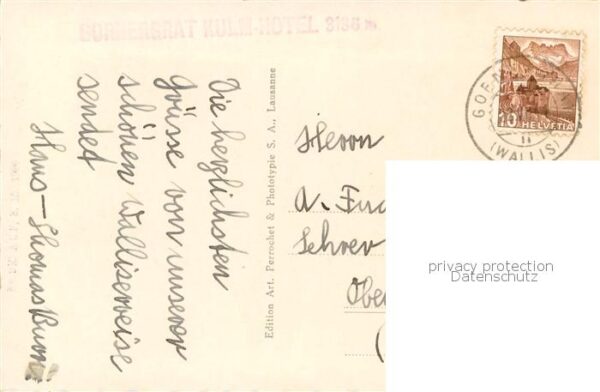 GORNERGRAT KULM-HOTEL 3136 m
Die herzlichsten
Grüsse von unserer
schönen Walliserreise
sendet
Hans-Thomas
Edition Art. Perrochet & Phototypie S. A., Lausanne
10 HELVETIA
(WALLIS)
II
Herrn
A.
Schrev
Obe
(
privacy protection
Datenschutz